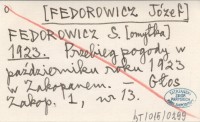 [FEDOROWICZ Józef]
FEDOROWICZ S. [omyłka]
1923. Przebieg pogody w
październiku roku 1923
w Zakopanem. Głos
Zakop. 1, nr 13.